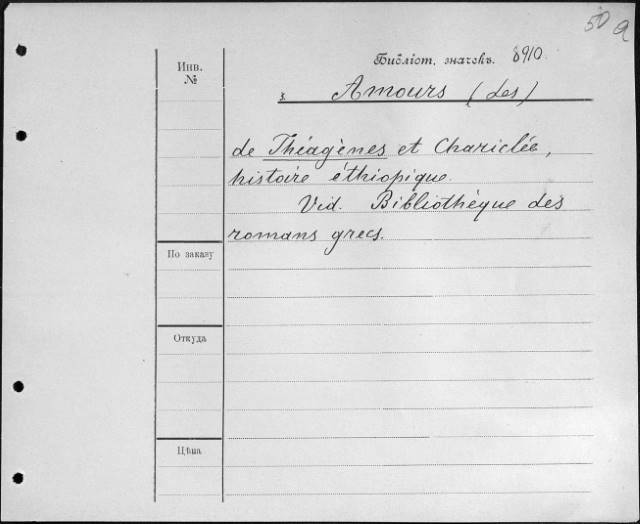 50 a
Библіот. значекъ. 8910.
Инв.
№
Amours (Les)
de Théagènes et Chariclée,
histoire éthiopique.
Vid. Bibliothèque des
romans grecs.
По заказу
Откуда
Цѣна